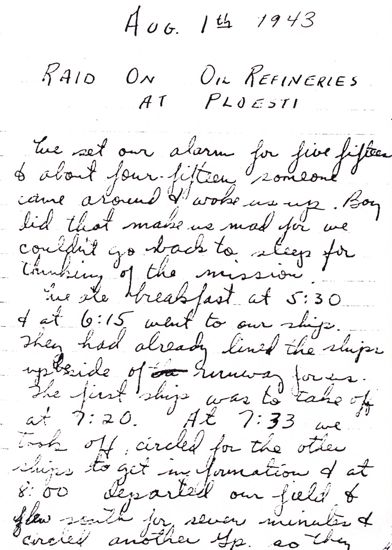 Aug. 1th 1943
Raid On Oil Refineries
At Ploesti
We set our alarm for five fifteen
& about four-fifteen someone
came around & woke us up. Boy
did that make us mad for we
couldn't go back to sleep for
thinking of the mission.
We ate breakfast at 5:30
& at 6:15 went to our ship.
They had already lined the ships
up beside of runway for us.
The first ship was to take off
at 7:20. At 7:33 we
took off, circled for the other
ships to get in formation & at
8:00 departed our field &
flew south for seven minutes &
circled another gp. so they